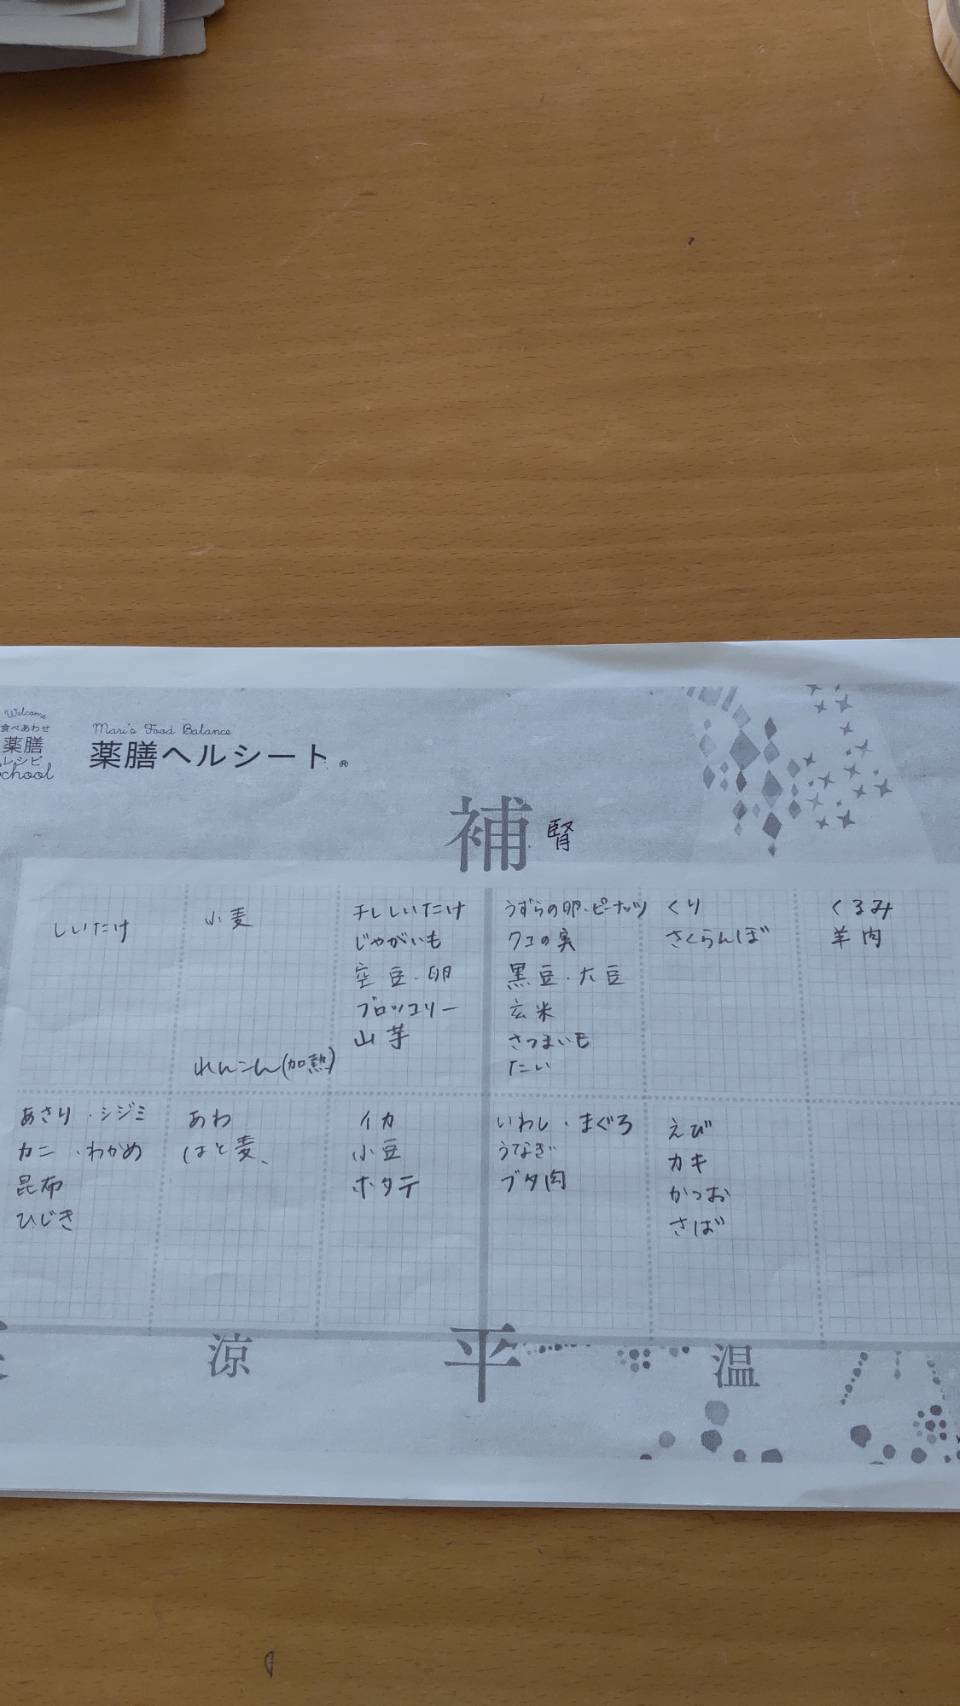 Welcome
食べあわせ
薬膳
レシピ
School
Mari's Food Balance
薬膳ヘルシート®
補 腎
しいたけ
小麦
れんこん(加熱)
干ししいたけ
じゃがいも
空豆・卵
ブロッコリー
山芋
うずらの卵・ピーナッツ
クコの実
黒豆・大豆
玄米
さつまいも
たい
くり
さくらんぼ
くるみ
羊肉
あさり・シジミ
カニ・わかめ
昆布
ひじき
あわ
はと麦、
イカ
小豆
ホタテ
いわし・まぐろ
うなぎ
ブタ肉
えび
カキ
かつお
さば
涼
平
温